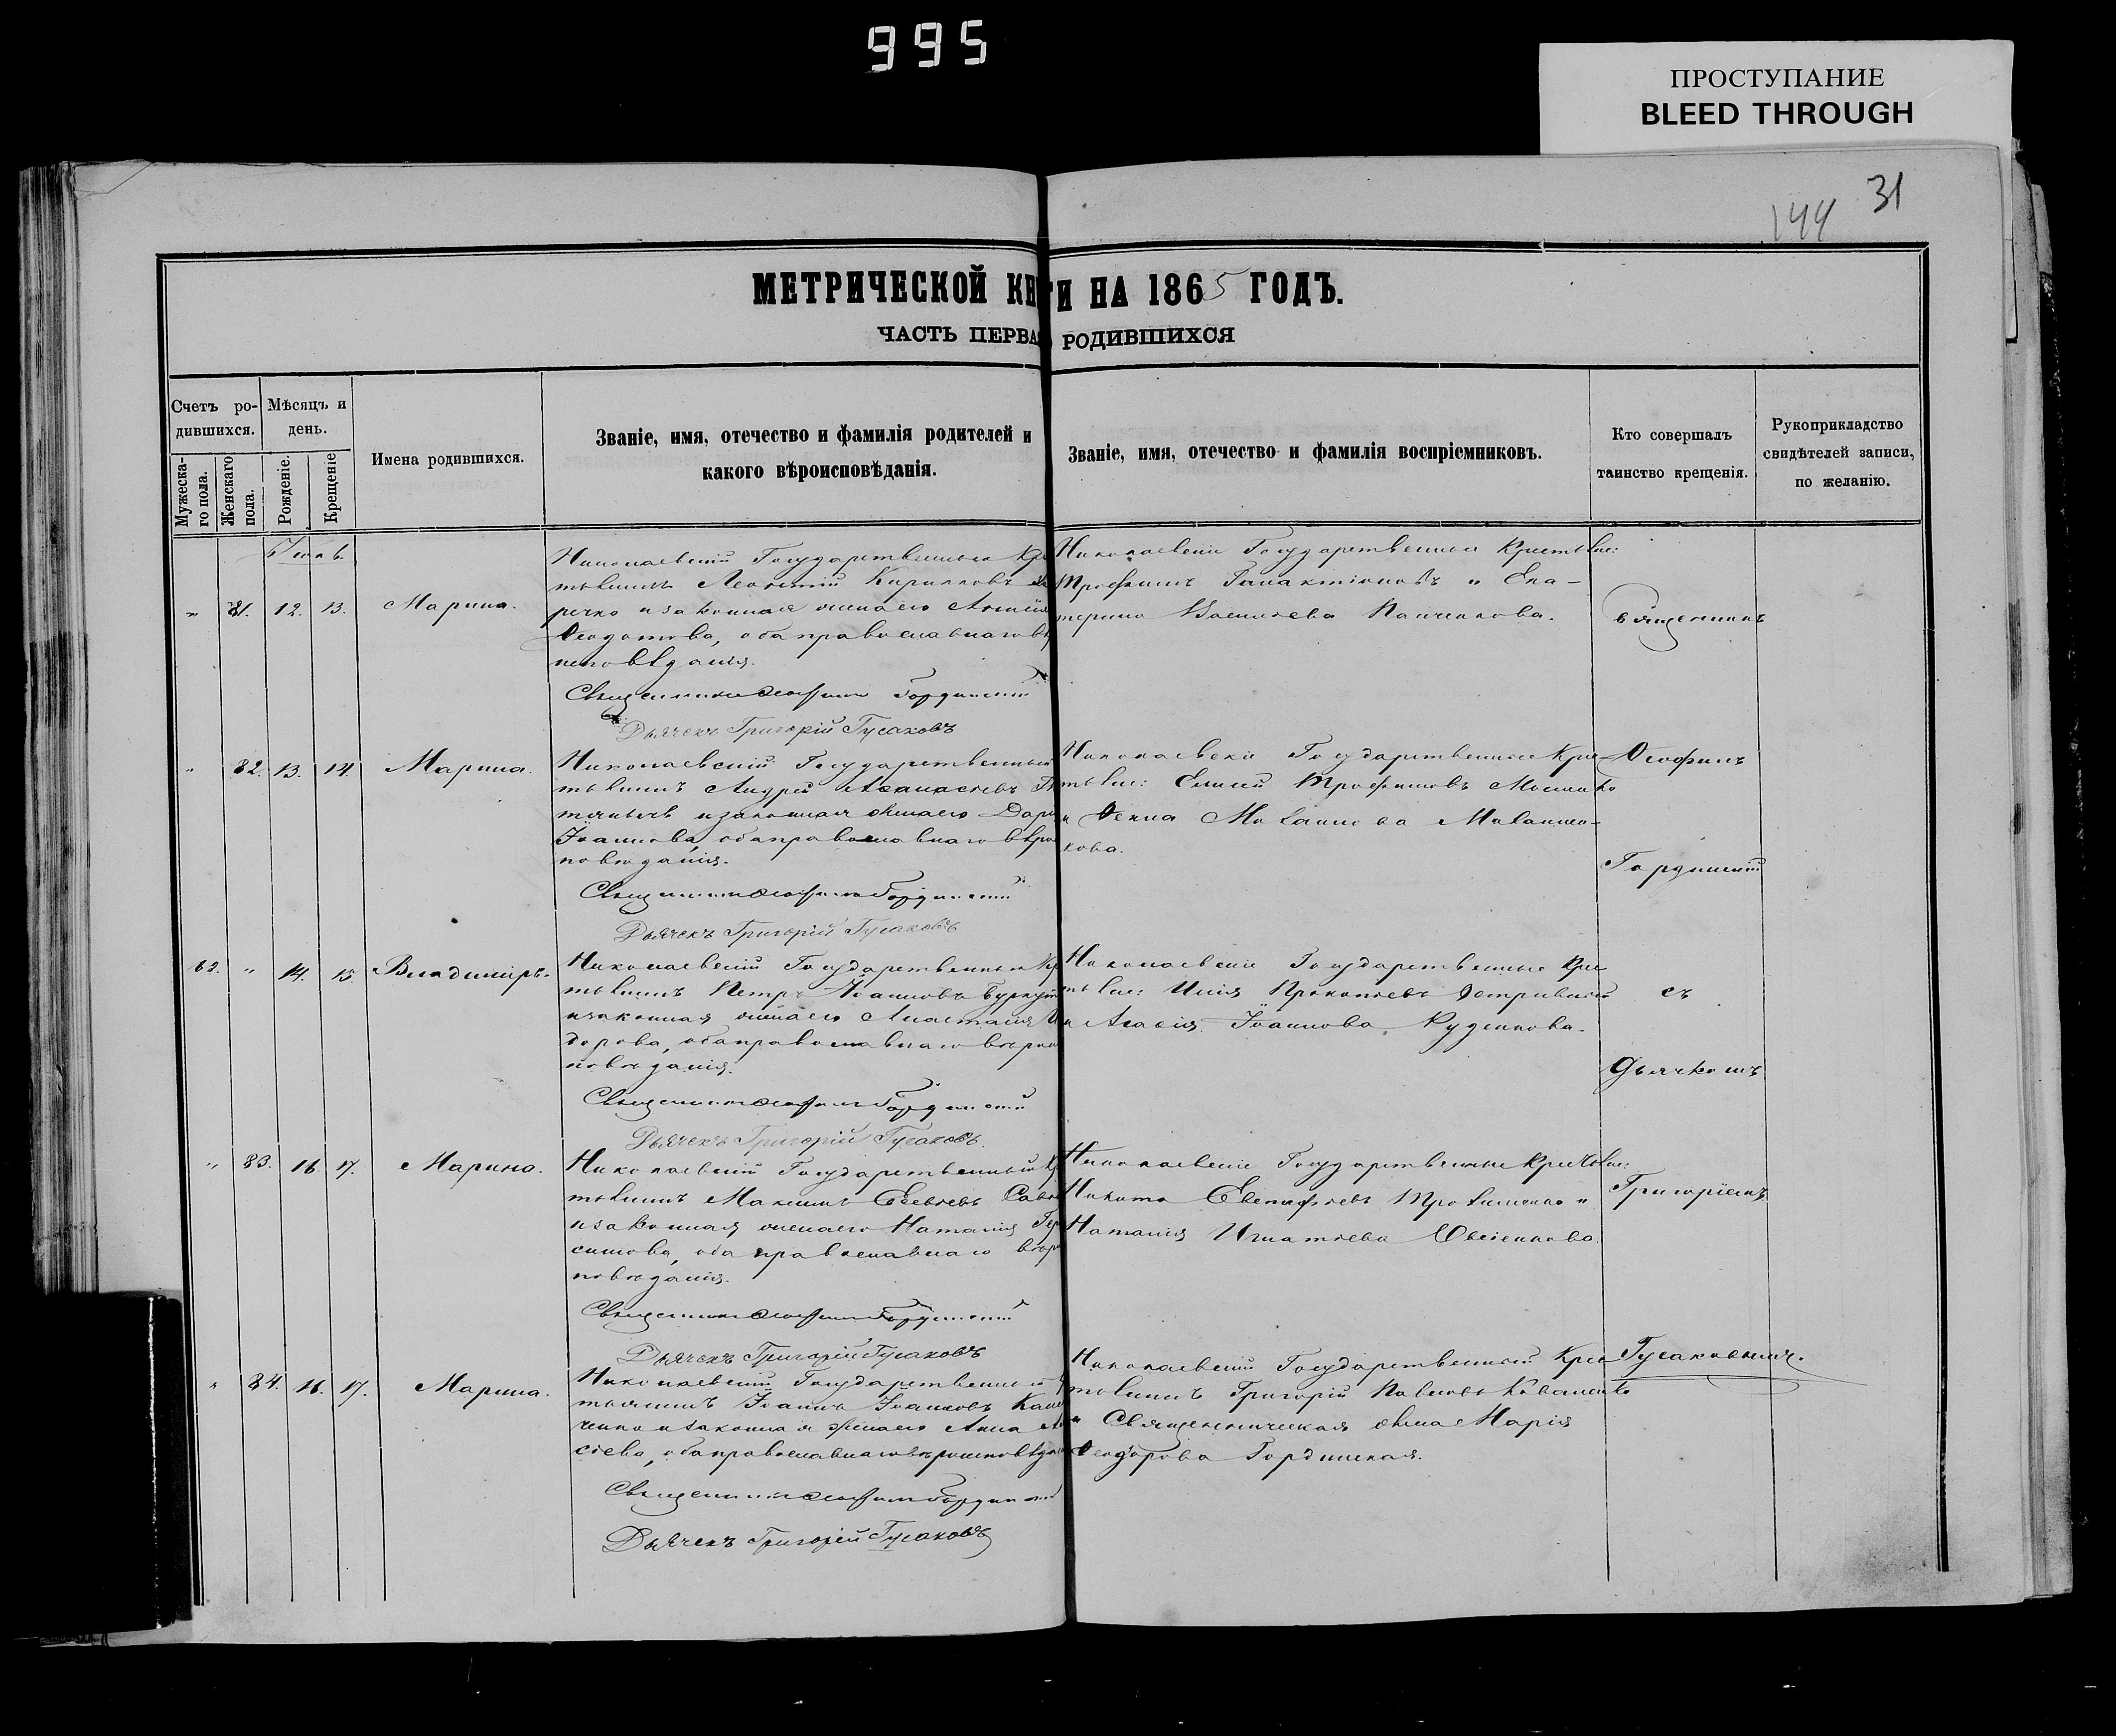 995
ПРОСТУПАНИЕ
BLEED THROUGH
31
144
МЕТРИЧЕСКОЙ КНИГИ НА 1865 ГОДЪ.
ЧАСТЬ ПЕРВАЯ О РОДИВШИХСЯ
Счетъ ро-
дившихся.
Мѣсяцъ и
день.
Мужеска-
го пола.
Женскаго
пола.
Рожденіе.
Крещеніе
Имена родившихся.
Званіе, имя, отечество и фамилія родителей и
какого вѣроисповѣданія.
Званіе, имя, отечество и фамилія воспріемниковъ.
Кто совершалъ
таинство крещенія.
Рукоприкладство
свидѣтелей записи,
по желанію.
„ 81. 12. 13. Марина.
Николаевскій Государственный Кре
тьянинъ Леонтій Кирилловъ
рченко и законная жена его
Феодотова, оба православнаго вѣ
исповѣданія.
Священникъ Феофилъ Гординскій
Дьячекъ Григорій Гусаковъ
Николаевскіе Государственные Крестьяне:
Трофимъ Галактіоновъ и Ека-
терина Васильева Панченкова.
Священникъ
„ 82. 13. 14. Марина.
Николаевскій Государственный
тьянинъ Андрей Аѳанасьевъ
и законная жена его Дар
Іоаннова, оба православнаго вѣро
повѣданія.
Священникъ Феофилъ Гординскій
Дьячекъ Григорій Гусаковъ
Николаевскіе Государственные Кре-
тьяне: Елисей Трофимовъ
и
кова.
Феофилъ
Гординскій
62. „ 14. 15. Владимиръ.
Николаевскій Государственный Кр
тьянинъ Петръ Іоанновъ
и законная жена его Анастасія И
дорова, оба православнаго вѣроис
повѣданія.
Священникъ Феофилъ Гординскій
Дьячекъ Григорій Гусаковъ.
Николаевскіе Государственные Кре
тьяне: Илія Прокопьевъ
и Агафія Іоаннова Руденкова.
съ
Дьячкомъ
„ 83. 16. 17. Марина.
Николаевскій Государственный К
тьянинъ Максимъ Савч
и законная жена его Наталія Гер
симова, оба православнаго вѣро
повѣданія.
Священникъ Феофилъ Гординскій
Дьячекъ Григорій Гусаковъ
Николаевскіе Государственные Крестьяне:
Никита и
Наталія Игнатьева Овсіенкова.
Григоріемъ
„ 84. 16. 17. Марина.
Николаевскій Государственный К
тьянинъ Іоаннъ Іоанновъ
ченко и законная жена его Анна
сіева, оба православнаго вѣроисповѣдан
Священникъ Феофилъ Гординскій
Дьячекъ Григорій Гусаковъ
Николаевскій Государственный Крес
тьянинъ Григорій Павловъ Коваленко
и Священническая жена Марія
Феодорова Гординская.
Гусаковымъ.